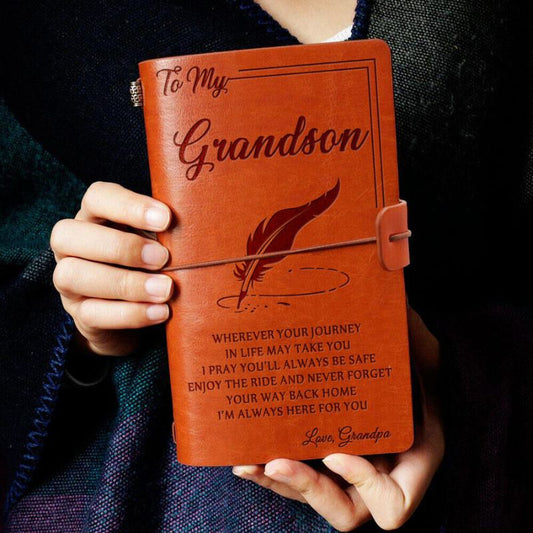 To My
Grandson
WHEREVER YOUR JOURNEY
IN LIFE MAY TAKE YOU
I PRAY YOU'LL ALWAYS BE SAFE
ENJOY THE RIDE AND NEVER FORGET
YOUR WAY BACK HOME
I'M ALWAYS HERE FOR YOU
Love, Grandpa